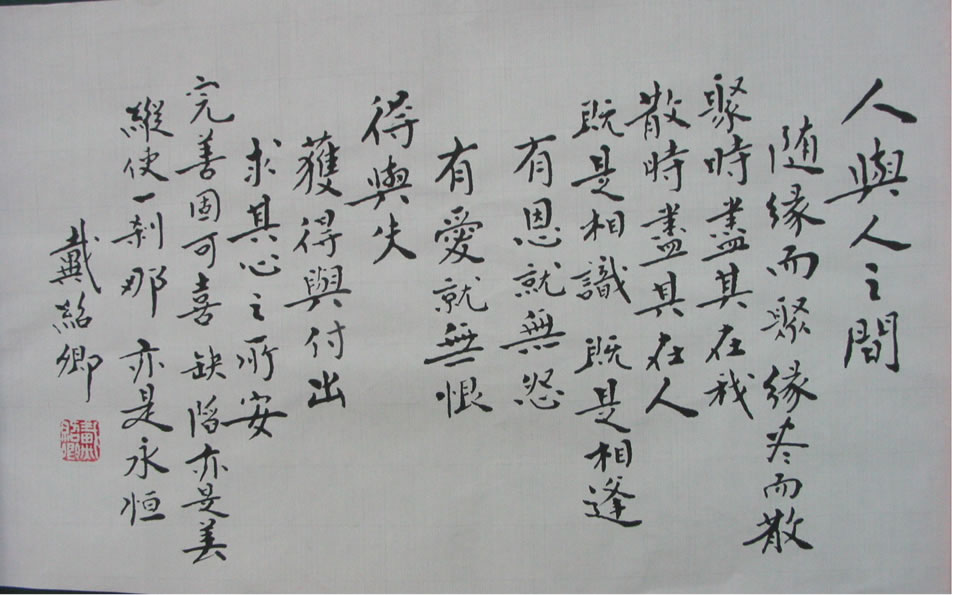 人與人之間
随緣而聚緣尽而散
聚時盡其在我
散時盡其在人
既是相識 既是相逢
有恩就無怨
有愛就無恨
得與失
獲得與付出
求其心之所安
完善固可喜 缺陷亦是美
縱使一刹那 亦是永恒
戴紹卿
戴紹卿